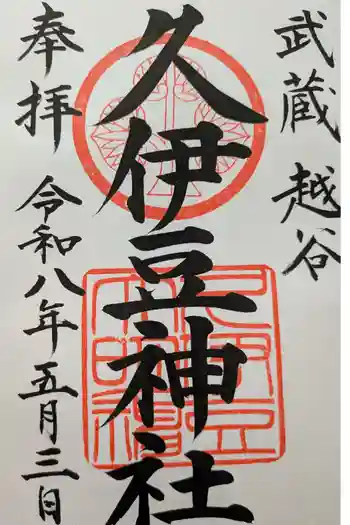 武蔵越谷
久伊豆神社
奉拝
令和八年五月三日